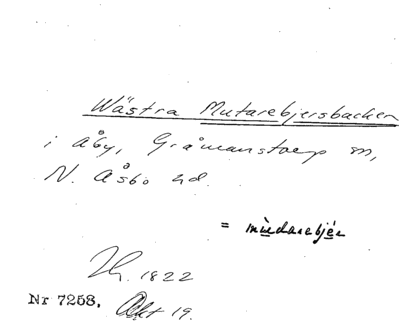 Wästra Mutarebjersbacken
i Åby, Gråmanstorp sn,
N. Åsbo hd.
= mùdarebjér
1822
Nr 7258, Akt 19.